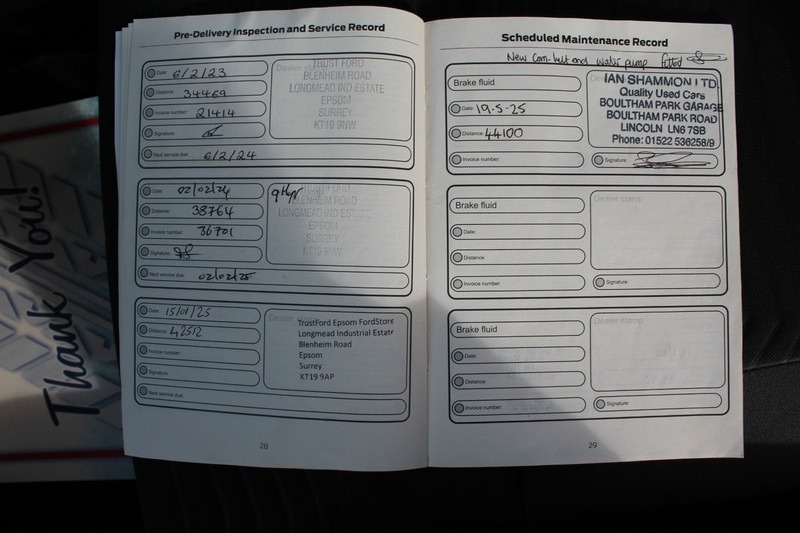 Thank You!
Pre-Delivery Inspection and Service Record
Date: 6/2/23
Distance: 34469
Invoice number: 21414
Signature:
Next service due: 6/2/24
Dealer stamp
TRUST FORD
BLENHEIM ROAD
LONGMEAD IND ESTATE
EPSOM
SURREY
KT19 9NW
Date: 02/02/24
Distance: 38764
Invoice number: 36701
Signature:
Next service due: 02/02/25
TRUST FORD
BLENHEIM ROAD
LONGMEAD IND ESTATE
EPSOM
SURREY
KT19 9NW
Date: 15/01/25
Distance: 42512
Invoice number:
Signature:
Next service due:
Dealer stamp
TrustFord Epsom FordStore
Longmead Industrial Estate
Blenheim Road
Epsom
Surrey
KT19 9AP
28
Scheduled Maintenance Record
New Cam-belt and water pump fitted
Brake fluid
Date: 19-5-25
Distance: 44100
Invoice number:
IAN SHAMMON LTD.
Quality Used Cars
BOULTHAM PARK GARAGE
BOULTHAM PARK ROAD
LINCOLN LN6 7SB
Phone: 01522 536258/9
Signature:
Brake fluid
Date:
Distance:
Invoice number:
Dealer stamp
Signature:
Brake fluid
Date:
Distance:
Invoice number:
Dealer stamp
Signature:
29